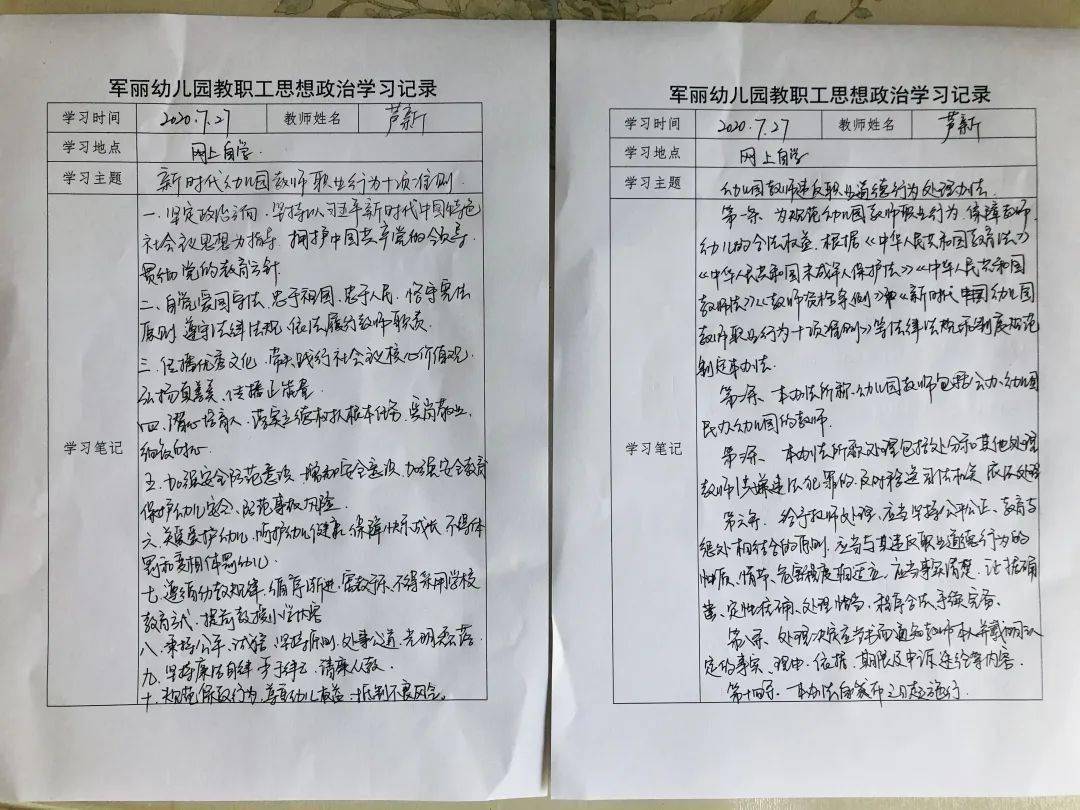 军丽幼儿园教职工思想政治学习记录
学习时间 2020.7.27 教师姓名 芦新
学习地点 网上自学.
学习主题 新时代幼儿园教师职业行为十项准则.
学习笔记
一.坚定政治方向.坚持以习近平新时代中国特色
社会主义思想为指导.拥护中国共产党的领导.
贯彻党的教育方针
二、自觉爱国守法.忠于祖国,忠于人民.恪守宪法
原则 遵守法律法规.依法履行教师职责.
三.传播优秀文化.带头践行社会主义核心价值观.
弘扬真善美、传播正能量.
四.潜心培育人.落实立德树人根本任务.爱岗敬业.
细致耐心.
五.加强安全防范意识.增强安全意识.加强安全教育
保护幼儿安全、防范事故风险.
六.关爱爱护幼儿,呵护幼儿健康.保障快乐成长.不得体
罚和变相体罚幼儿.
七、遵循幼教规律.循序渐进.不得采用学校
教育方式、提前教授小学内容
八、秉持公平、诚信.坚持原则.处事公道.光明磊落.
九.坚持廉洁自律 严于律己.清廉从教.
十.规范保教行为,尊重幼儿权益.抵制不良风气.
军丽幼儿园教职工思想政治学习记录
学习时间 2020.7.27 教师姓名 芦新
学习地点 网上自学
学习主题 幼儿园教师违反职业道德行为处理办法.
学习笔记
第一条、为规范幼儿园教师职业行为.保障教师.
幼儿的合法权益.根据《中华人民共和国教育法》
《中华人民共和国未成年人保护法》《中华人民共和国
教师法》《教师资格条例》和《新时代中国幼儿园
教师职业行为十项准则》等法律法规和制度规范
制定本办法.
第二条、本办法所称幼儿园教师包括公办幼儿园
民办幼儿园的教师.
第三条、本办法所称处理包括处分和其他处理
教师涉嫌违法犯罪的.及时移送司法机关依法处理
第六条、给予教师处理、应当坚持公平公正、教育与
惩处相结合的原则.应当与其违反职业道德行为的
性质、情节、危害程度相适应.应当事实清楚、证据确
凿、定性准确、处理恰当、程序合法、手续完备.
第八条、处理决定应当书面通知教师本人并载明认
定的事实、理由、依据、期限及申诉途径等内容.
第十四条、本办法自发布之日起施行.